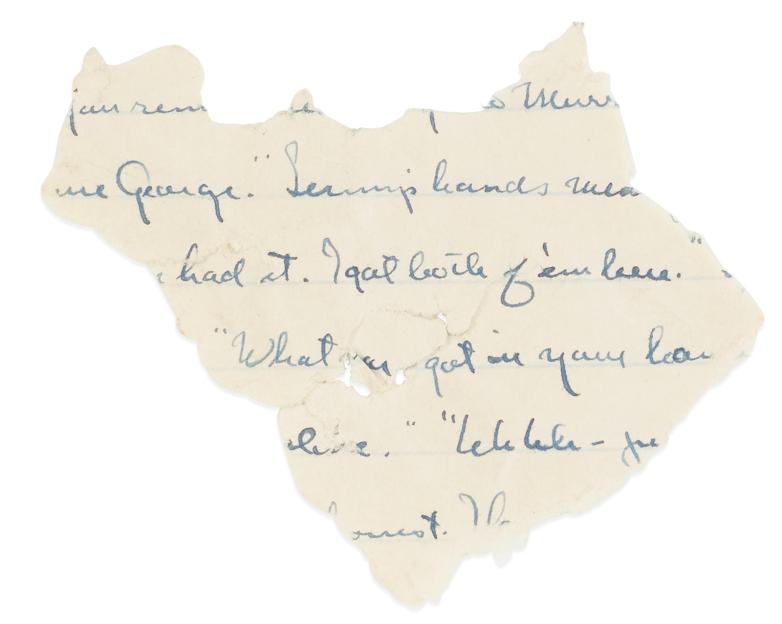 you rem o Murr
me George." Lennys hands mea
had it. I got both of 'em here."
"What got in your han
live." "Uh uh - ju
onest. Th